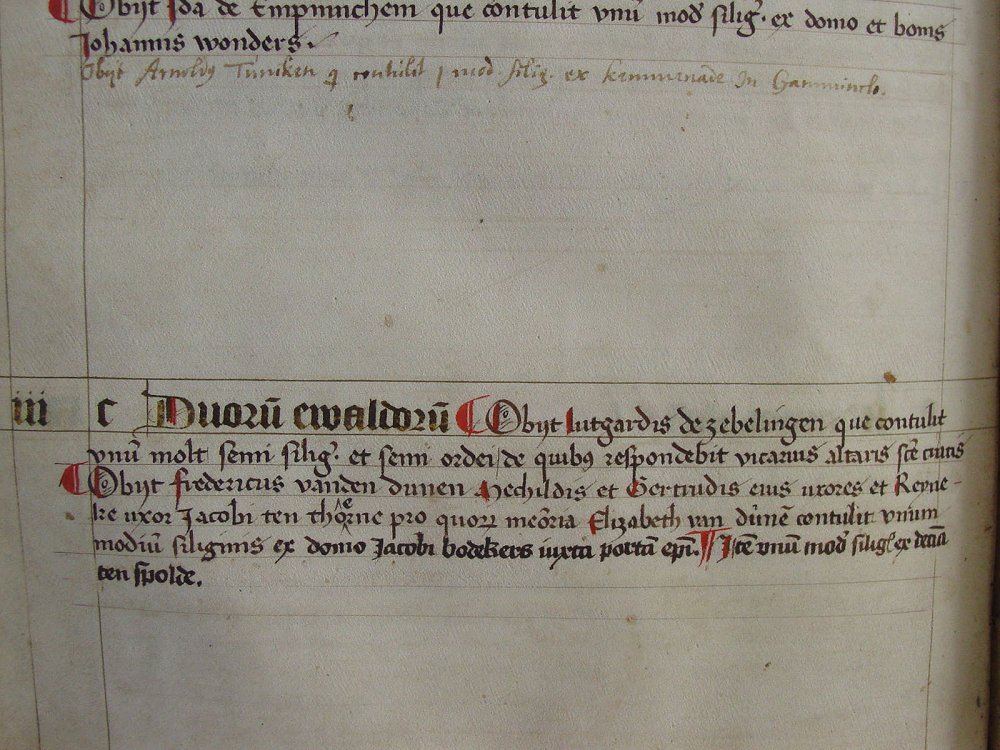 Obijt Ida de Empminchem que contulit vnū mod̄ siliḡ. ex domo et bonis
Johannis wonders.
Obijt Arnold9 Tuniken q̄ contulit j mod. silig. ex kemmenade In Gamminck.
iii c Duorū ewaldorū Obijt Lutgardis de zebelingen que contulit
vnū molt semi siliḡ. et semi ordei de quib9 respondebit vicarius altaris sc̄te c̄ucis
Obijt fredericus vanden dunen Mechildis et Gertrudis eius uxores et Reyne-
lre uxor Jacobi ten thorne pro quorꝝ meōria Elizabeth van dūnē contulit vnum
modiū siliginis ex domo Jacobi bodekers iuxta portā ep̄i. Itē vnū mod̄ siliḡ ex decīa
ten spolde.